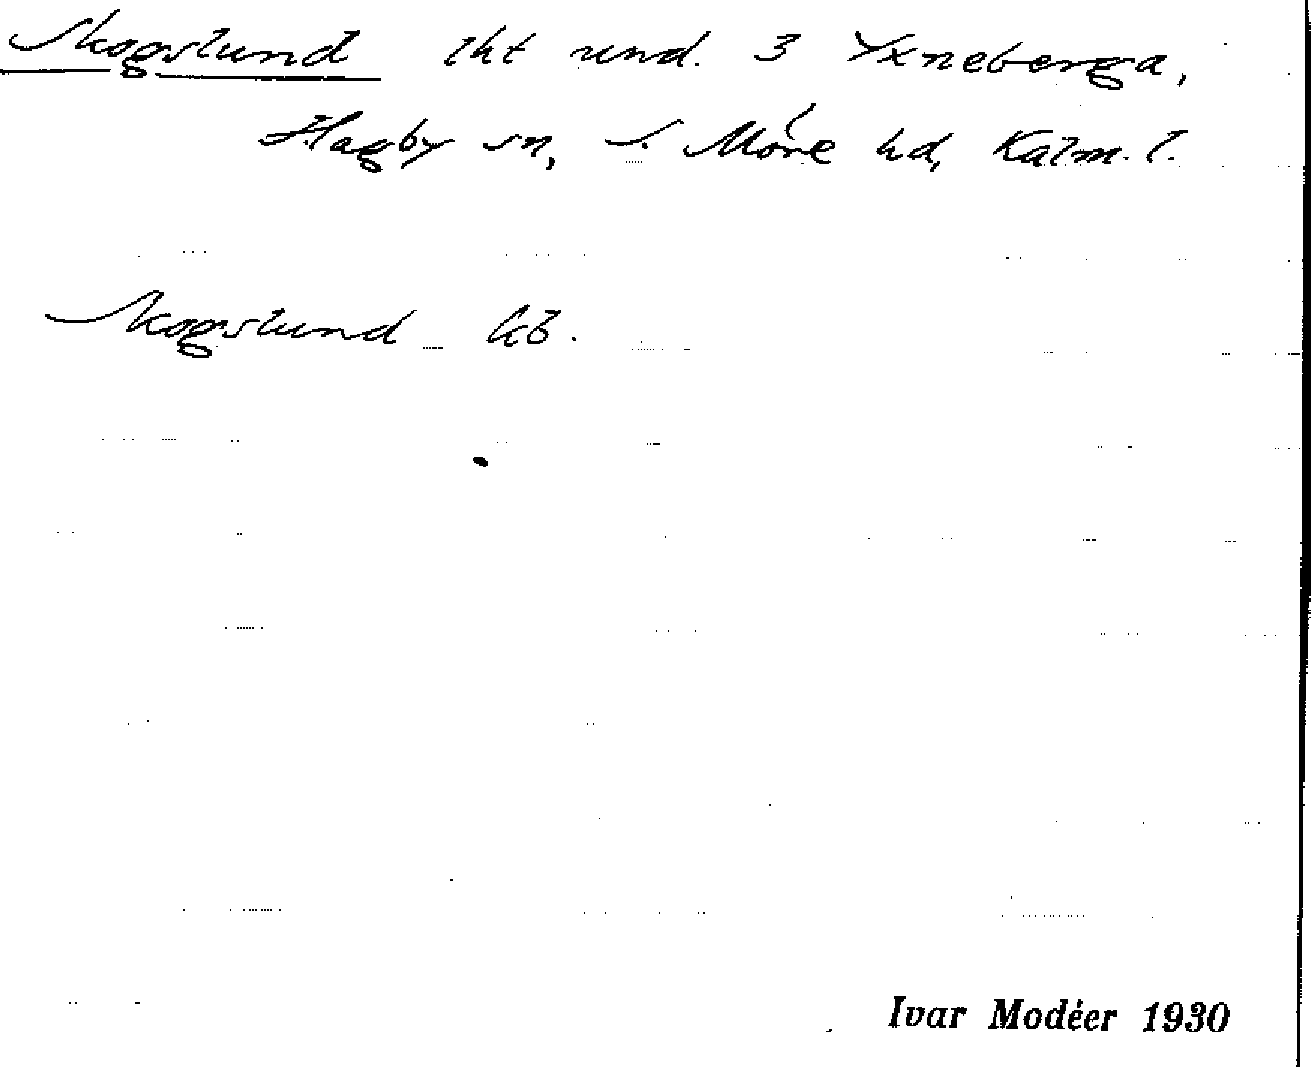 Skogslund lht und. 3 Yxneberga,
Hagby sn, S. Möre hd, Kalm. l.
Skogslund kb.
Ivar Modéer 1930